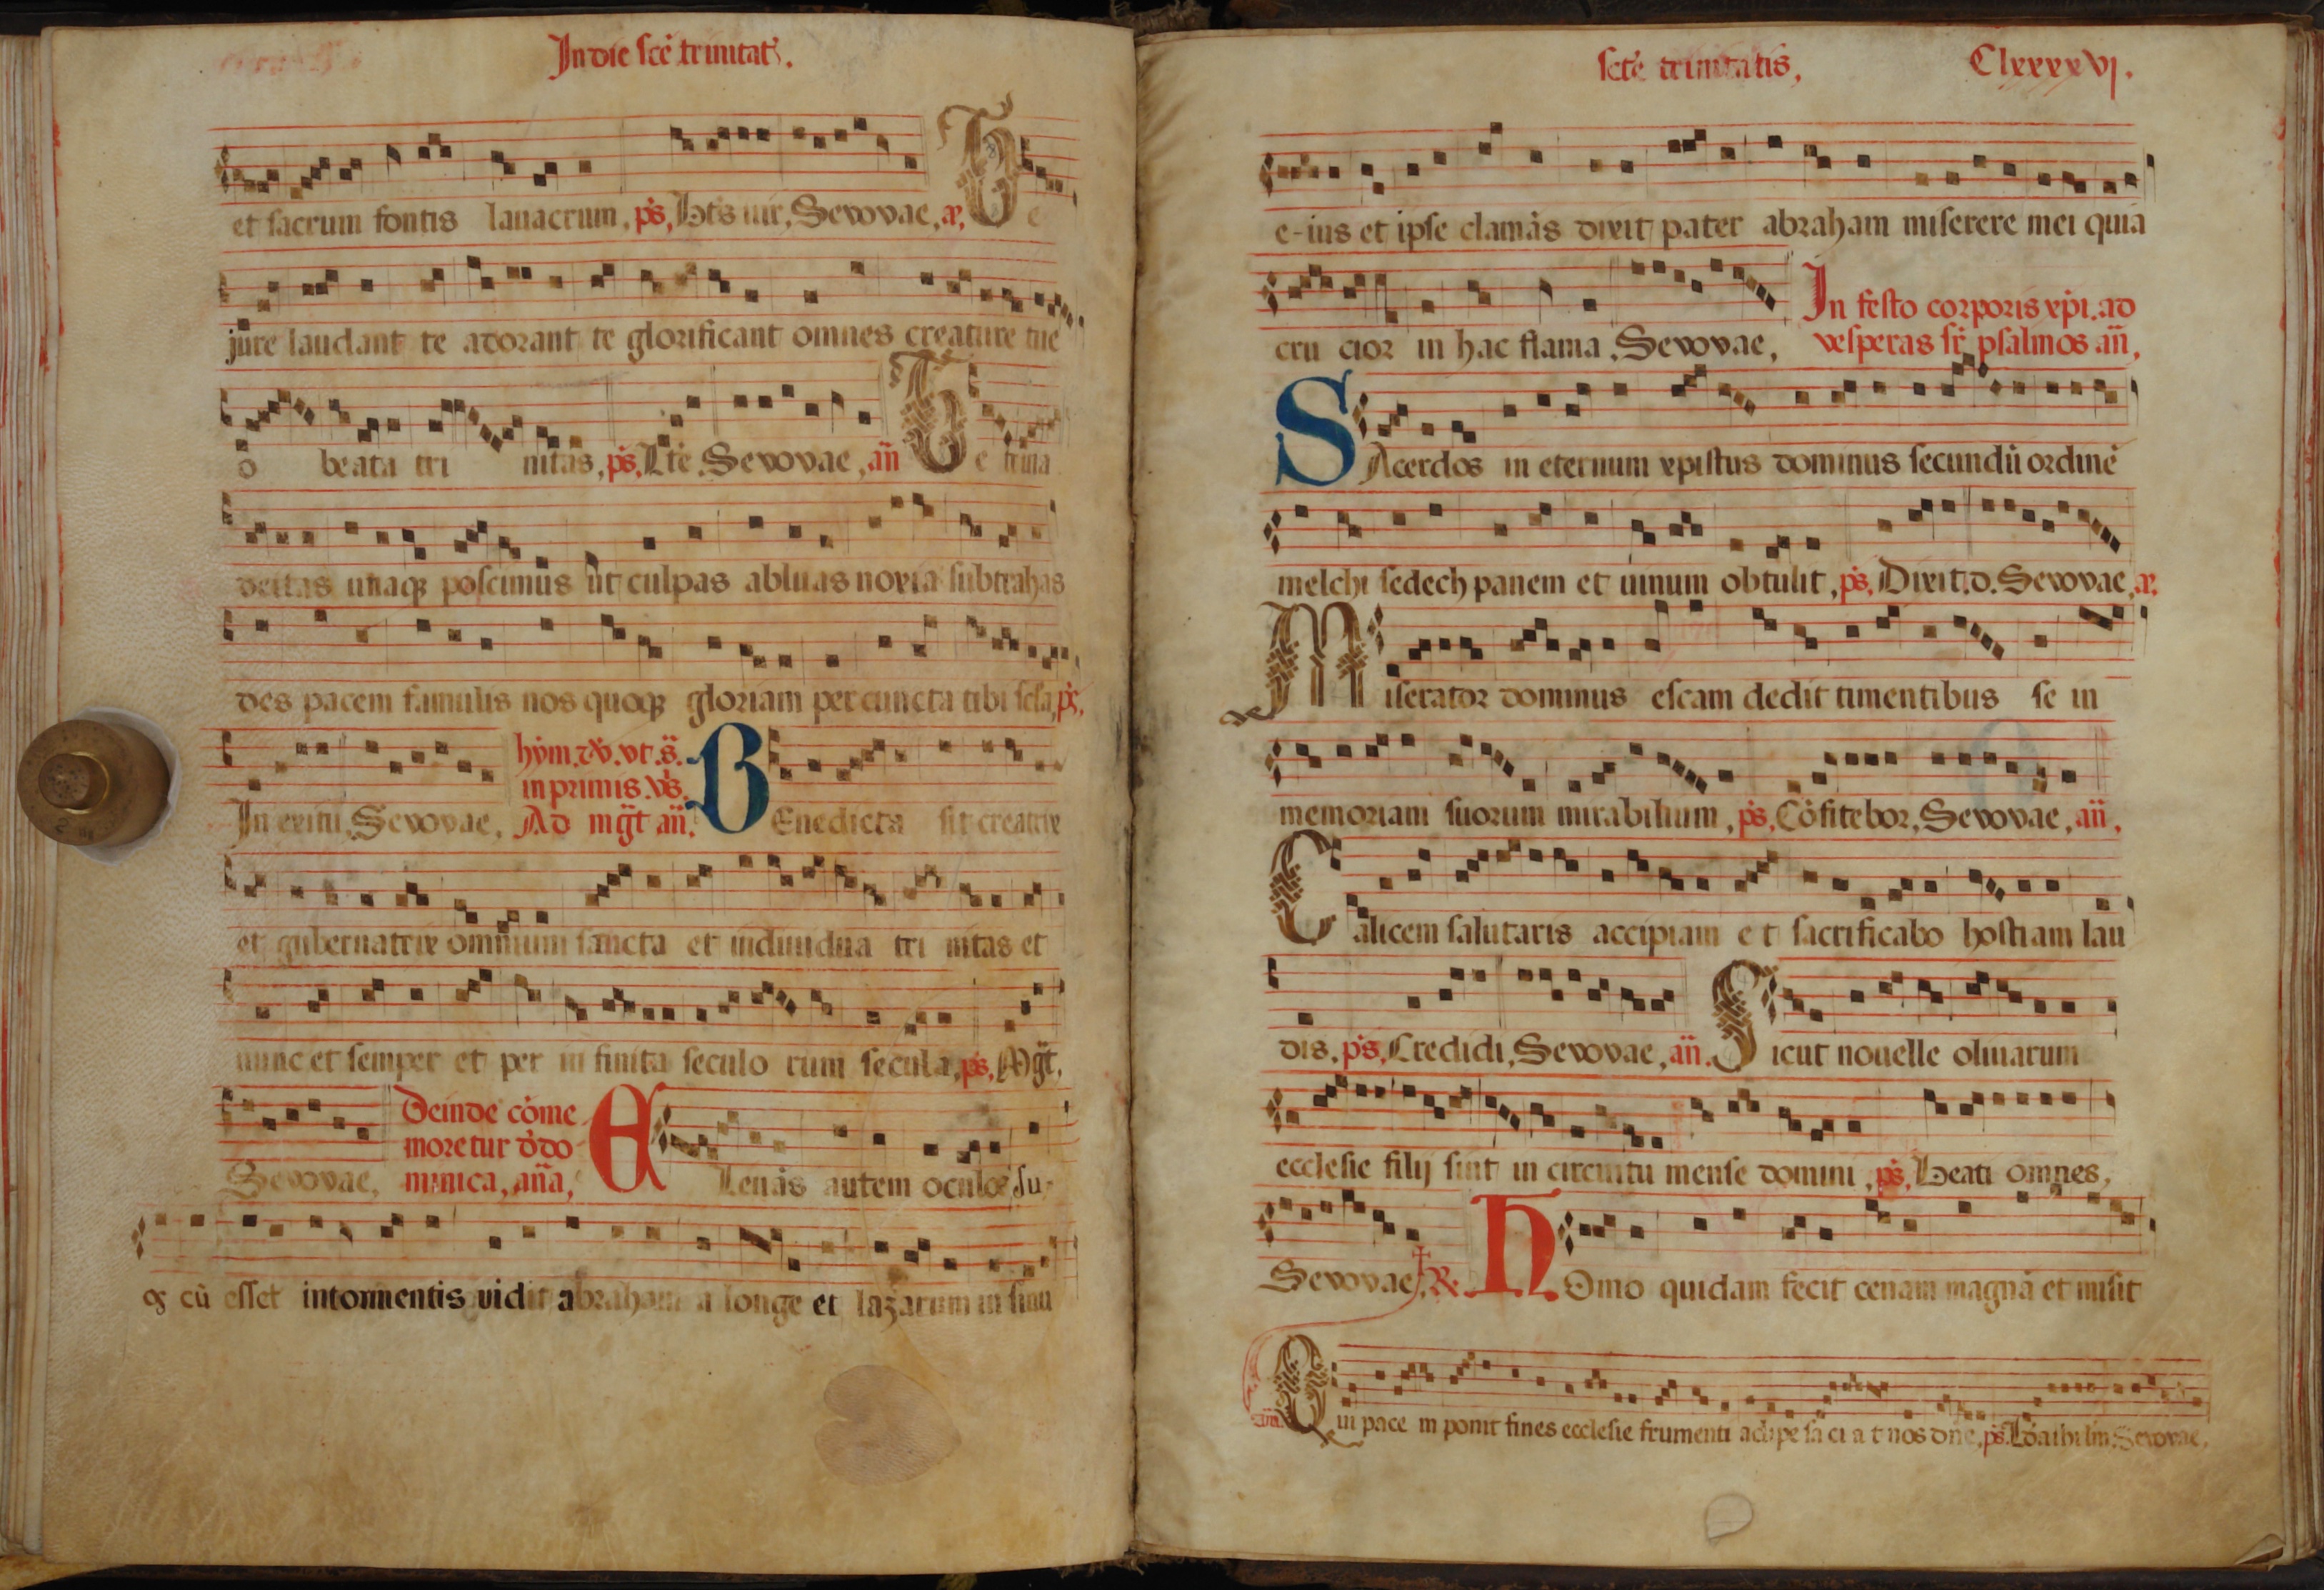 In die scē trinitat̄.
et sacrum fontis lauacrum, p̄s, Bt̄s uir, Sevovae, a᷒, T e
jure laudant te adorant te glorificant omnes creature tue
o beata tri nitas, p̄s, Lt̄e. Sevovae, an̄ T e trina
deitas unaqꝫ poscimus ut culpas abluas noxia subtrahas
des pacem famulis nos quoqꝫ gloriam per cuncta tibi scla, p̄s,
In exitu. Sevovae,
hym̄. et v̄. vt. s̄.
in primis. vs̄.
Ad mḡt an̄.
BEnedicta sit creatrix
et gubernatrix omnium sancta et indiuidua tri nitas et
nunc et semper et per in finita seculo rum secula, p̄s, Mḡt,
Sevovae,
Deinde cōme
moretur d̄ do
minica, an̄a,
ELeuās autem oculos su
os cū esset intormentis uidit abraham a longe et lazarum in sinu
sct̄e trinitatis,
ClxxxxVj.
e-ius et ipse clamās dixit pater abraham miserere mei quia
cru cior in hac flama. Sevovae,
In festo corporis xp̄i. ad
vesperas sr̄ psalmos an̄,
SAcerdos in eternum xpistus dominus secundū ordinē
melchi sedech panem et uinum obtulit, p̄s, Dixit. d. Sevovae, a᷒,
Miserator dominus escam dedit timentibus se in
memoriam suorum mirabilium, p̄s, Cōfitebor, Sevovae, an̄,
Calicem salutaris accipiam et sacrificabo hostiam lau
dis. p̄s, Credidi, Sevovae, an̄. Sicut nouelle oliuarum
ecclesie filij sint in circuitu mense domini, p̄s, Beati omnes,
Sevovae, ℟. HOmo quidam fecit cenam magnā et misit
an̄. Qui pace m ponit fines ecclesie frumenti adipe sa ci a t nos dn̄e, p̄s. Sevovae,